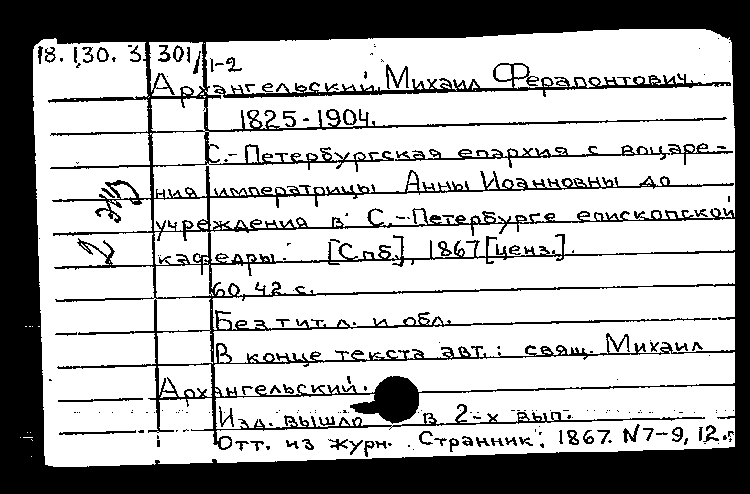 18.130.3.301/1-2
Архангельский, Михаил Ферапонтович.
1825-1904.
С.-Петербургская епархия с воцаре=
ния императрицы Анны Иоанновны до
учреждения в С.-Петербурге епископской
кафедры. [Спб.], 1867 [ценз.].
60, 42 с.
Без тит. л. и обл.
В конце текста авт.: свящ. Михаил
Архангельский.
Изд. вышло в 2-х вып.
Отт. из журн. Странник, 1867. N7-9, 12.
2